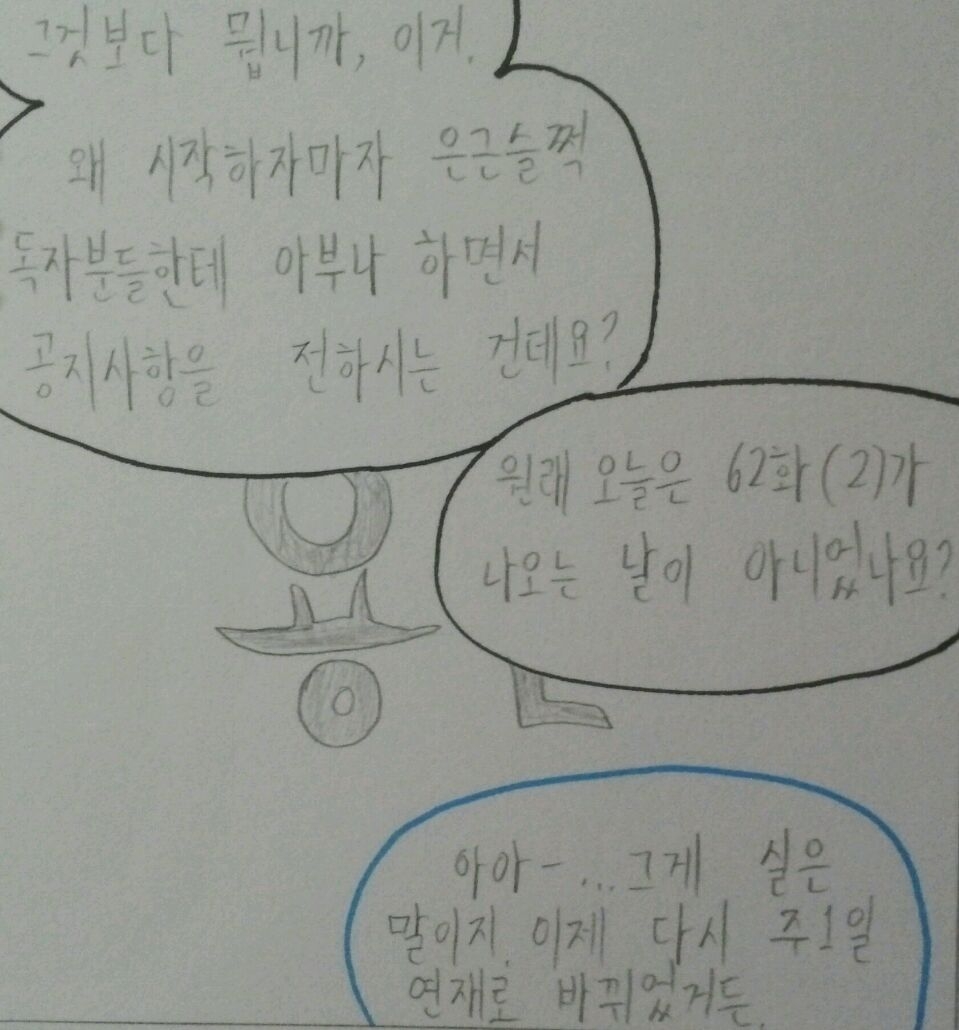 그것보다 뭡니까, 이거.
왜 시작하자마자 은근슬쩍
독자분들한테 아부나 하면서
공지사항을 전하시는 건데요?
원래 오늘은 62화(2)가
나오는 날이 아니었나요?
아아-...그게 실은
말이지. 이제 다시 주1일
연재로 바뀌었거든.